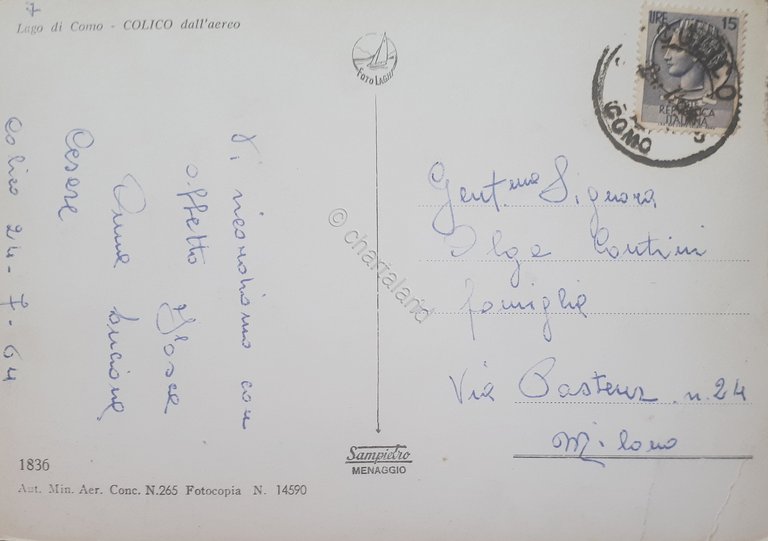 7
Lago di Como - COLICO dall'aereo
FOTO LAGHI
LIRE 15
REPUBBLICA
ITALIANA
COMO
Vi ricordiamo con
affetto
Anna Luciana
Cesare
Colico 24-7-64
Gent.ma Signora
Olga Contini
famiglia
Via Pasteur n. 24
Milano
© chartaland
Sampietro
MENAGGIO
1836
Aut. Min. Aer. Conc. N.265 Fotocopia N. 14590